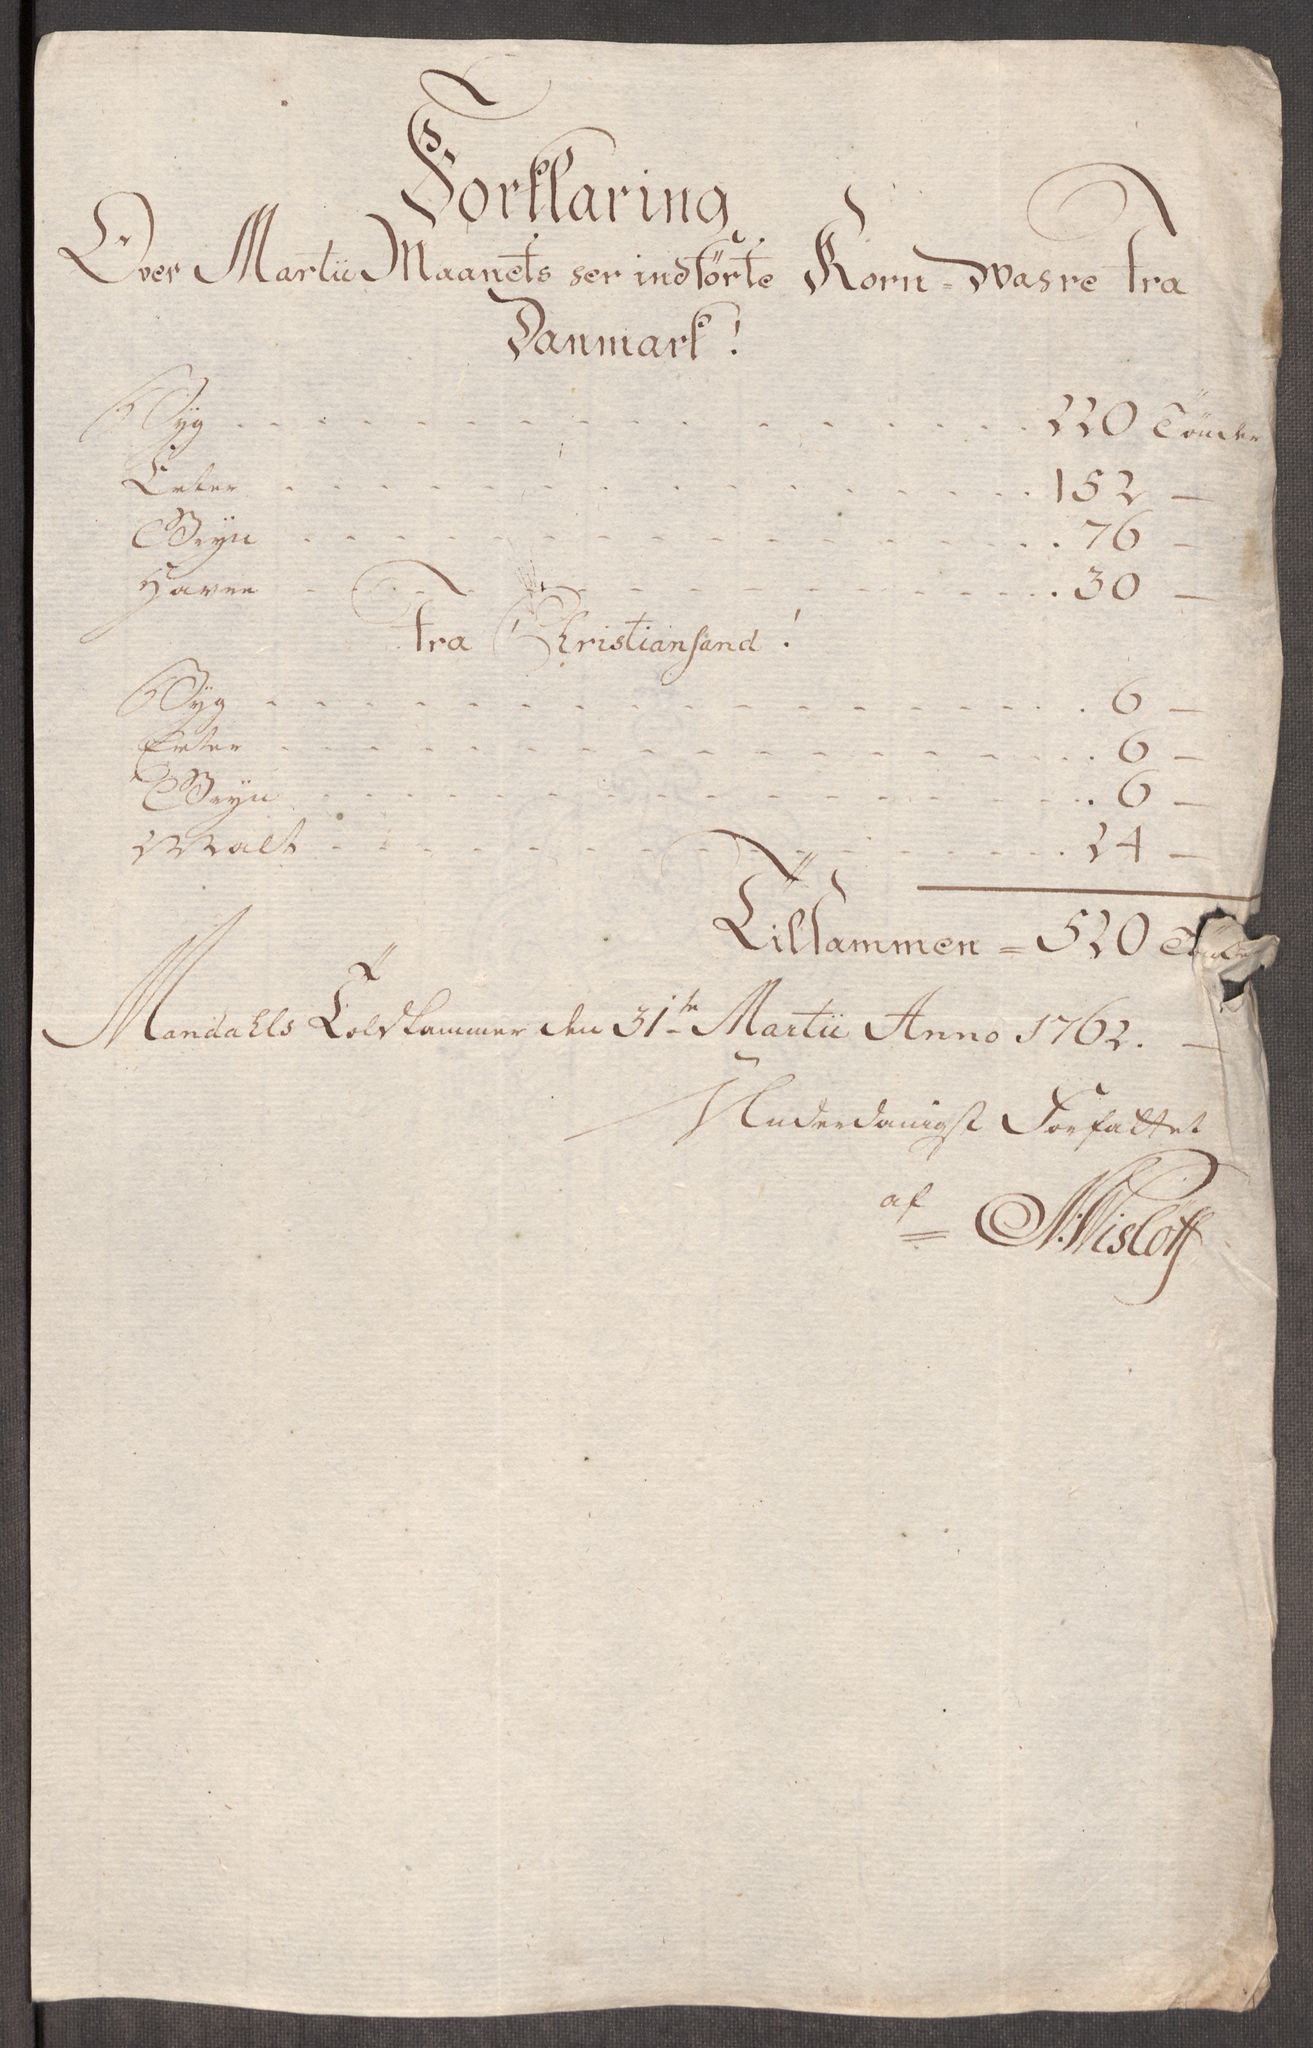 Forklaring
Over Martii Maanets her indförte Korn=Wahre fra
Danmark!
Byg 220 Tönder
Erter 152 —
Gryn 76 —
Havre 30 —
fra Christiansand!
Byg 6 —
Erter 6 —
Gryn 6 —
Malt 24 —
Tilsammen = 520 Tönder
Mandahls Toldkammer den 31te Martii Anno 1762. —
Underdanigst Forfattet
af N: Wislöff